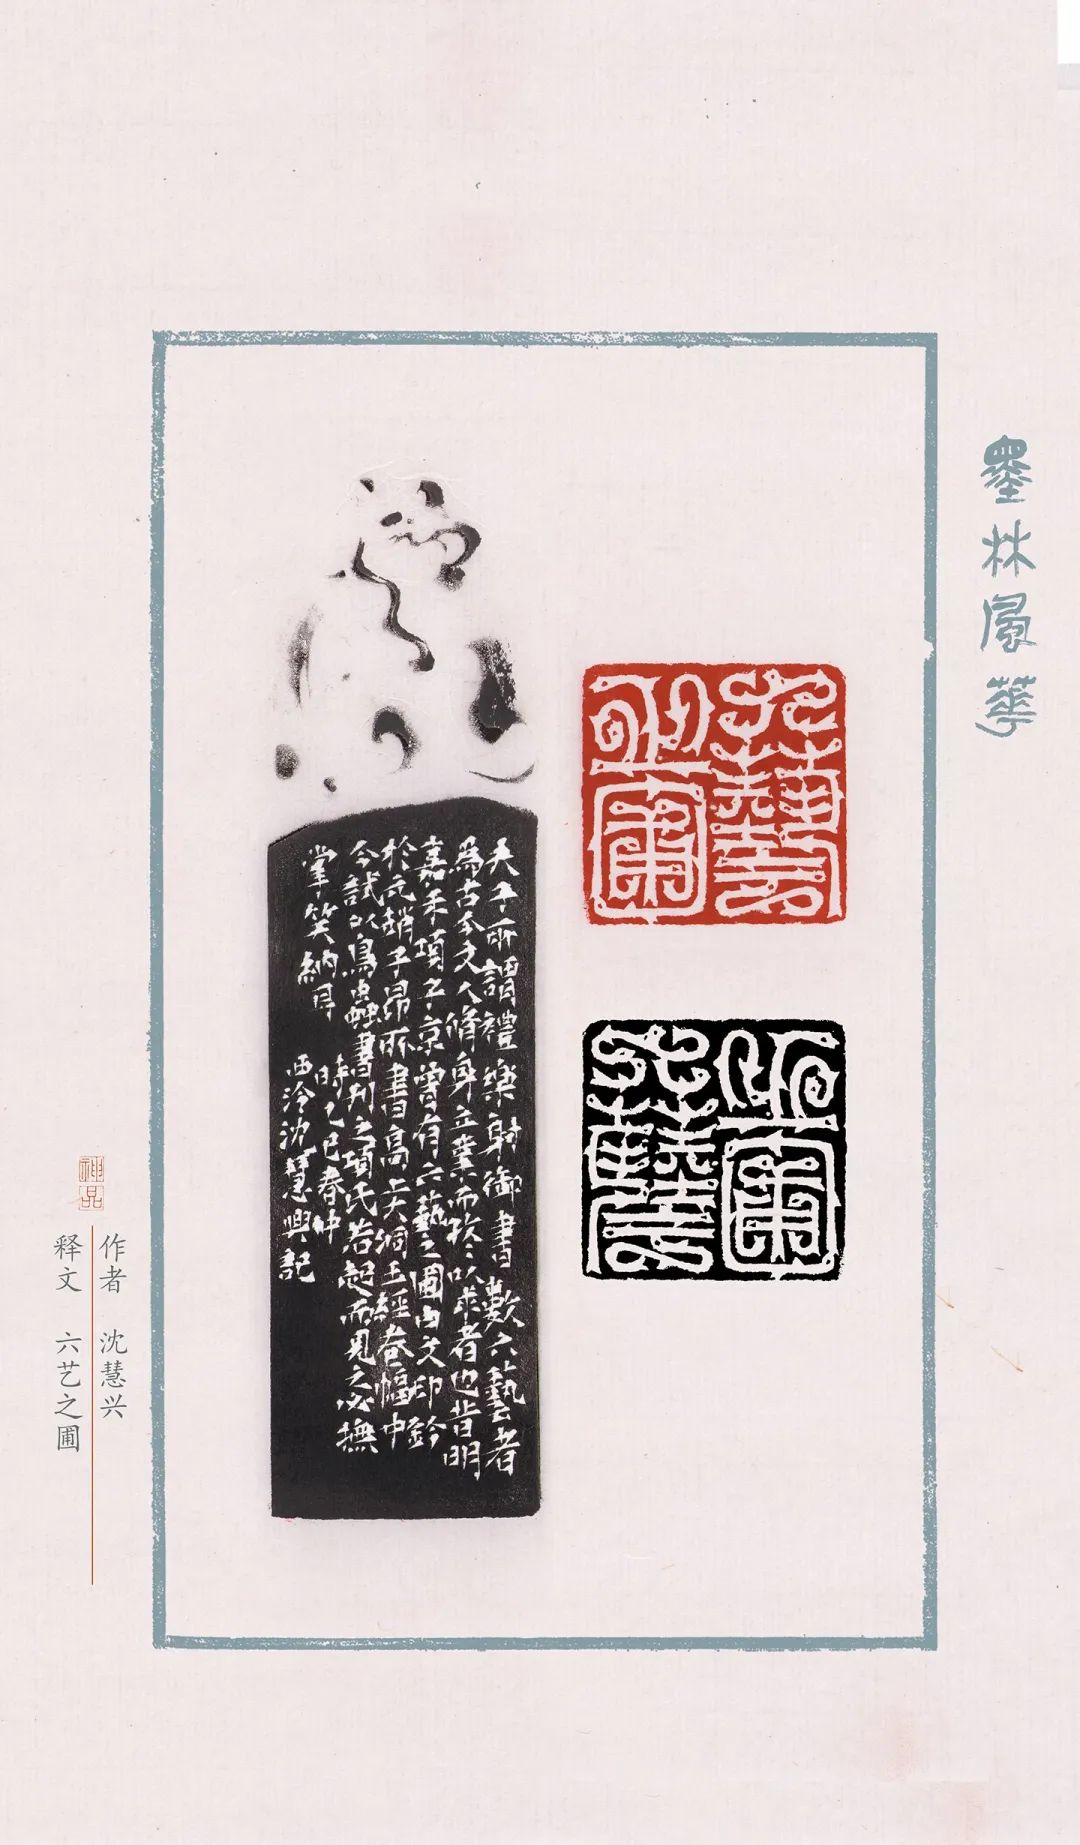 墨林風華
六藝之圃
夫子所謂禮樂射御書數六藝者
爲古今文人脩身立業而孜〻以求者也昔明
嘉禾項子京曾有六藝之圃白文印鈐
於元趙子昂所書高上大洞玉經卷幅中
今試以鳥蟲書刊之項氏若起而見之必撫
掌笑納耳
時乙巳春仲
西泠沈慧興記
神品
作者 沈慧兴
释文 六艺之圃